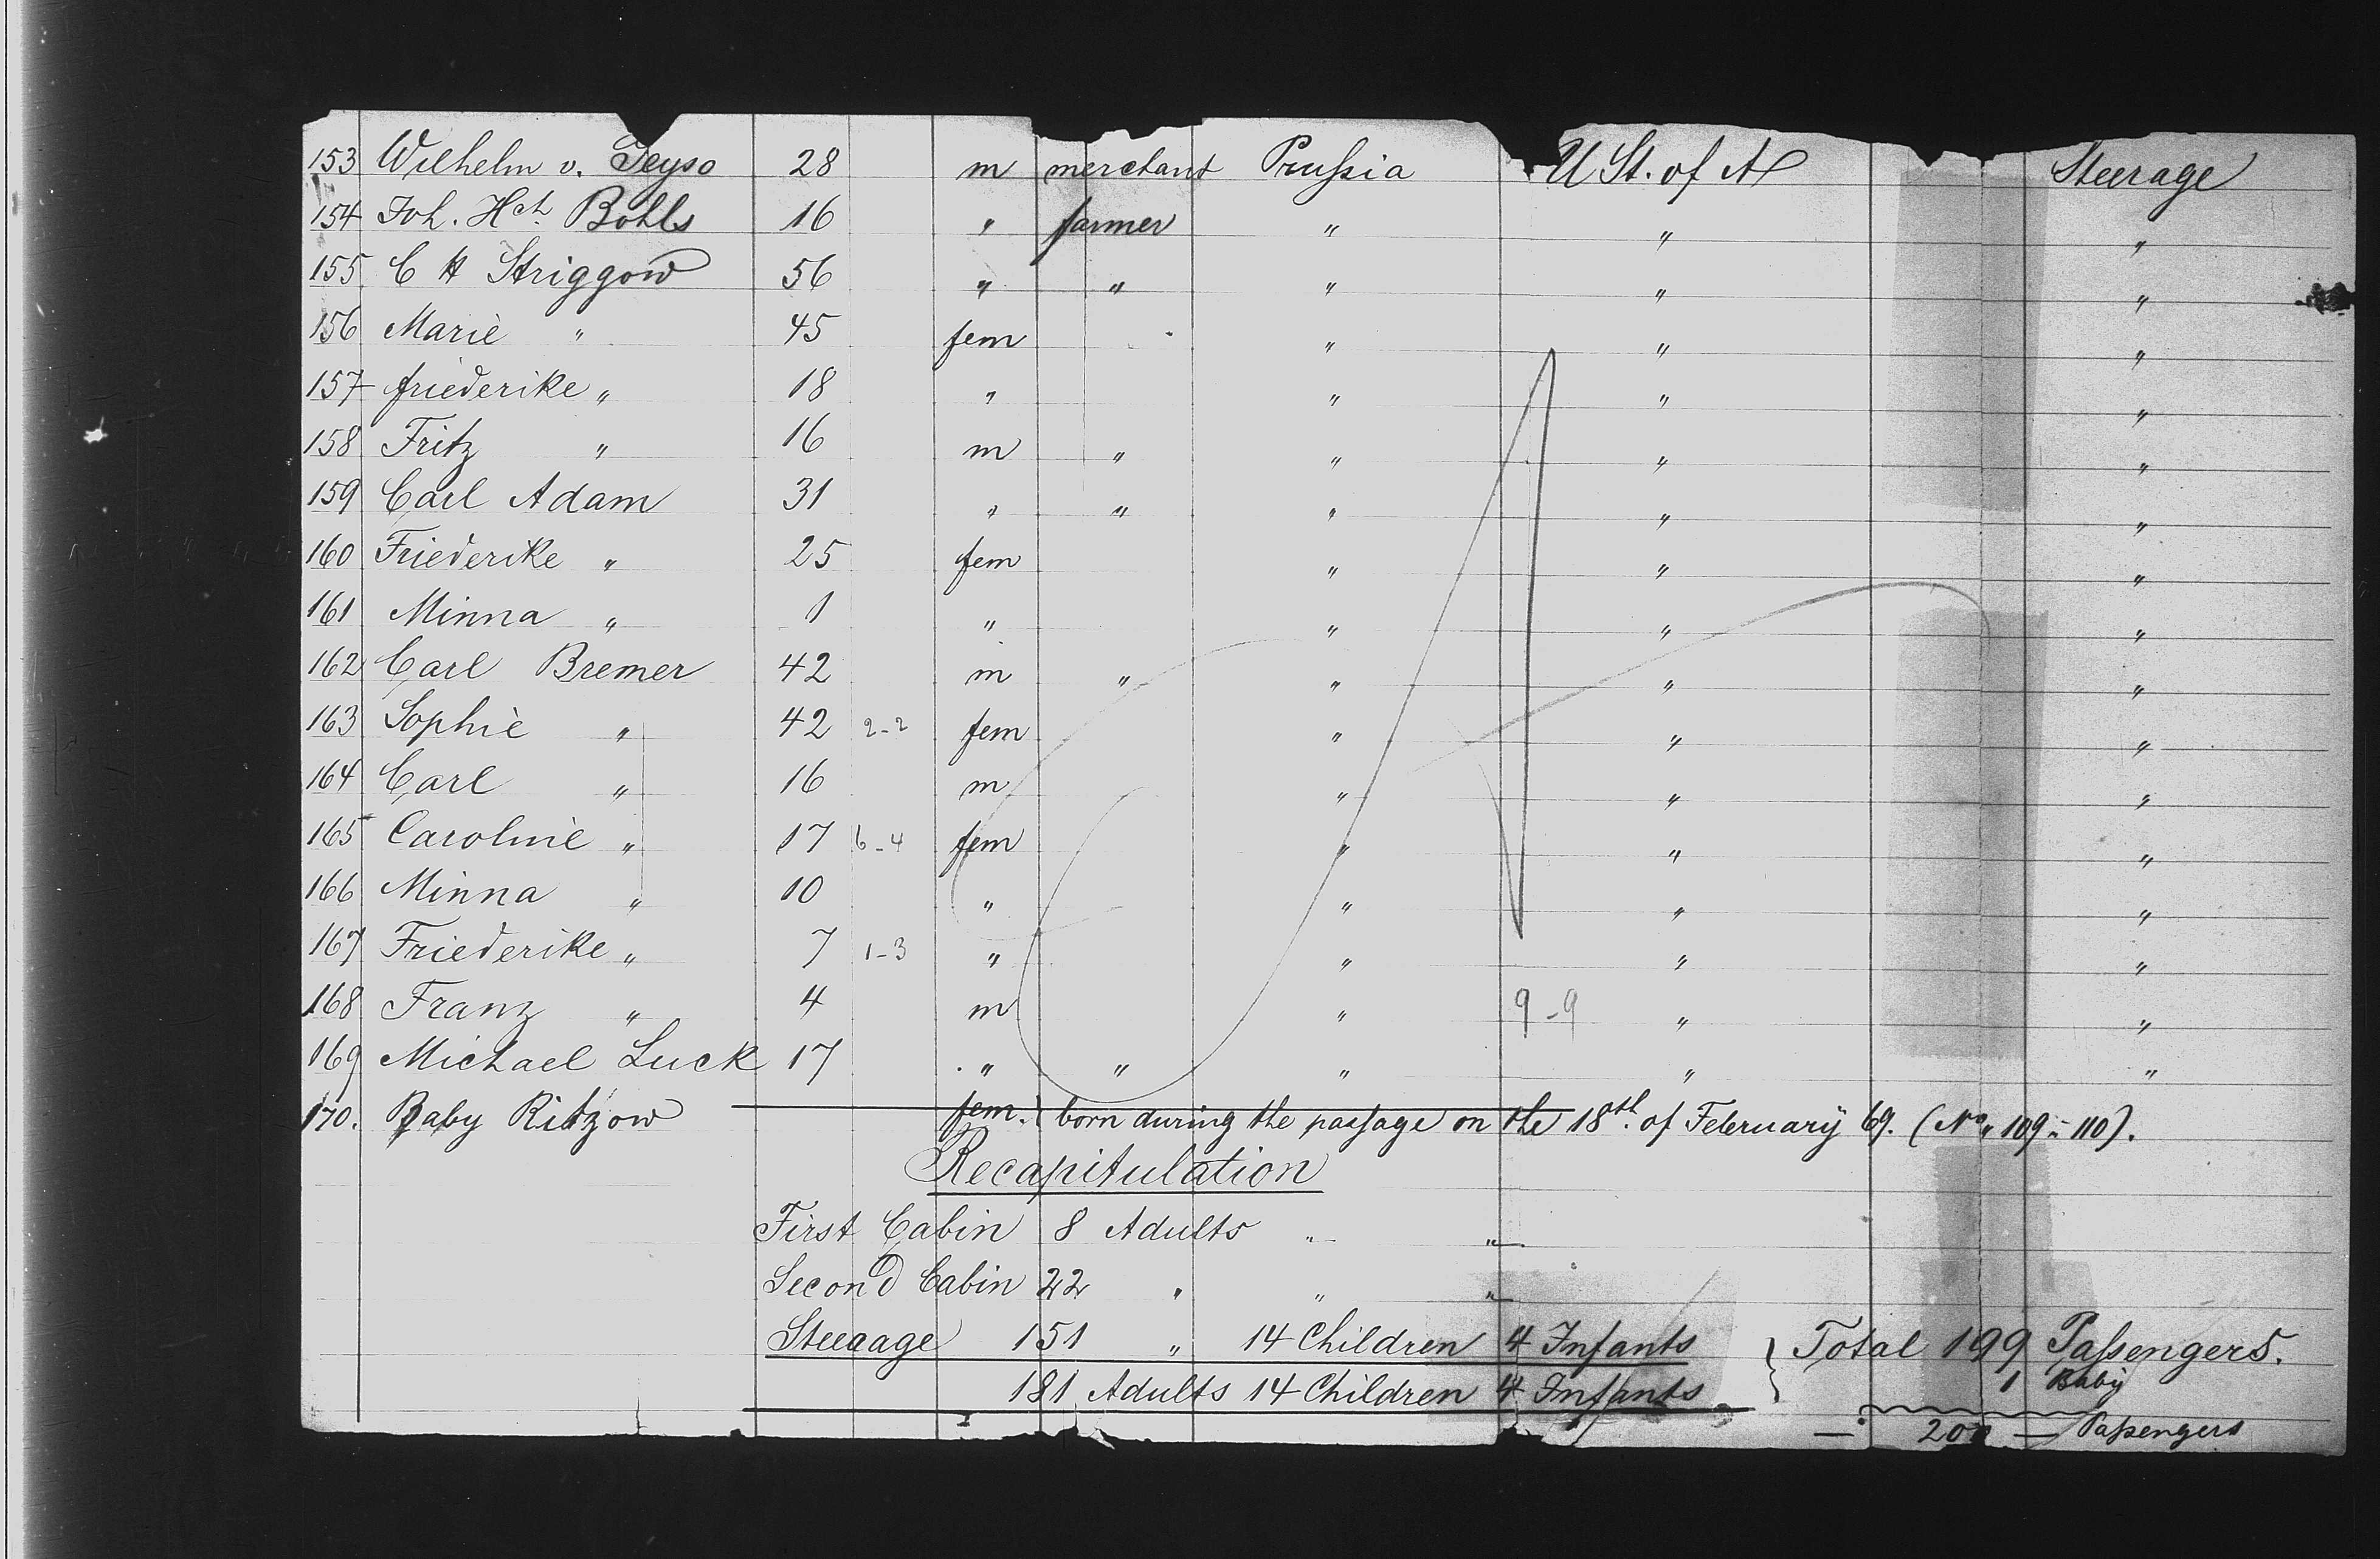 153 Wilhelm v. Geyso 28 m merchant Prussia U St. of A Steerage
154 Joh. Hch. Bohls 16 " farmer " " "
155 C H Striggow 56 " " " " "
156 Marie " 45 fem " " "
157 friederike " 18 " " " "
158 Fritz " 16 m " " " "
159 Carl Adam 31 " " " " "
160 Friederike " 25 fem " " "
161 Minna " 1 " " " "
162 Carl Bremer 42 m " " " "
163 Sophie " 42 2-2 fem " " "
164 Carl " 16 m " " "
165 Caroline " 17 6-4 fem " " "
166 Minna " 10 " " " "
167 Friederike " 7 1-3 " " " "
168 Franz " 4 m " 9-9 " "
169 Michael Luck 17 " " " " "
170. Baby Ritzow fem. born during the passage on the 18th. of February 69. (No. 109 " 110).
Recapitulation
First Cabin 8 Adults " "
Second Cabin 22 " " "
Steeaage 151 " 14 Children 4 Infants } Total 199 Passengers.
181 Adults 14 Children 4 Infants 1 Baby
— 200 — Passengers